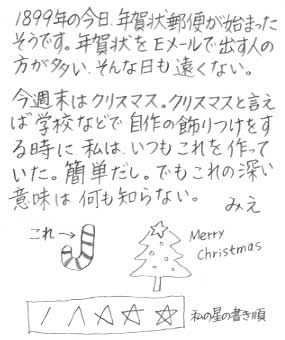 1899年の今日、年賀状郵便が始まった
そうです。年賀状をEメールで出す人の
方が多い、そんな日も遠くない。
今週末はクリスマス。クリスマスと言え
ば学校などで自作の飾りつけをす
る時に私は、いつもこれを作って
いた。簡単だし。でもこれの深い
意味は何も知らない。
みえ
これ→
Merry
Christmas
私の星の書き順